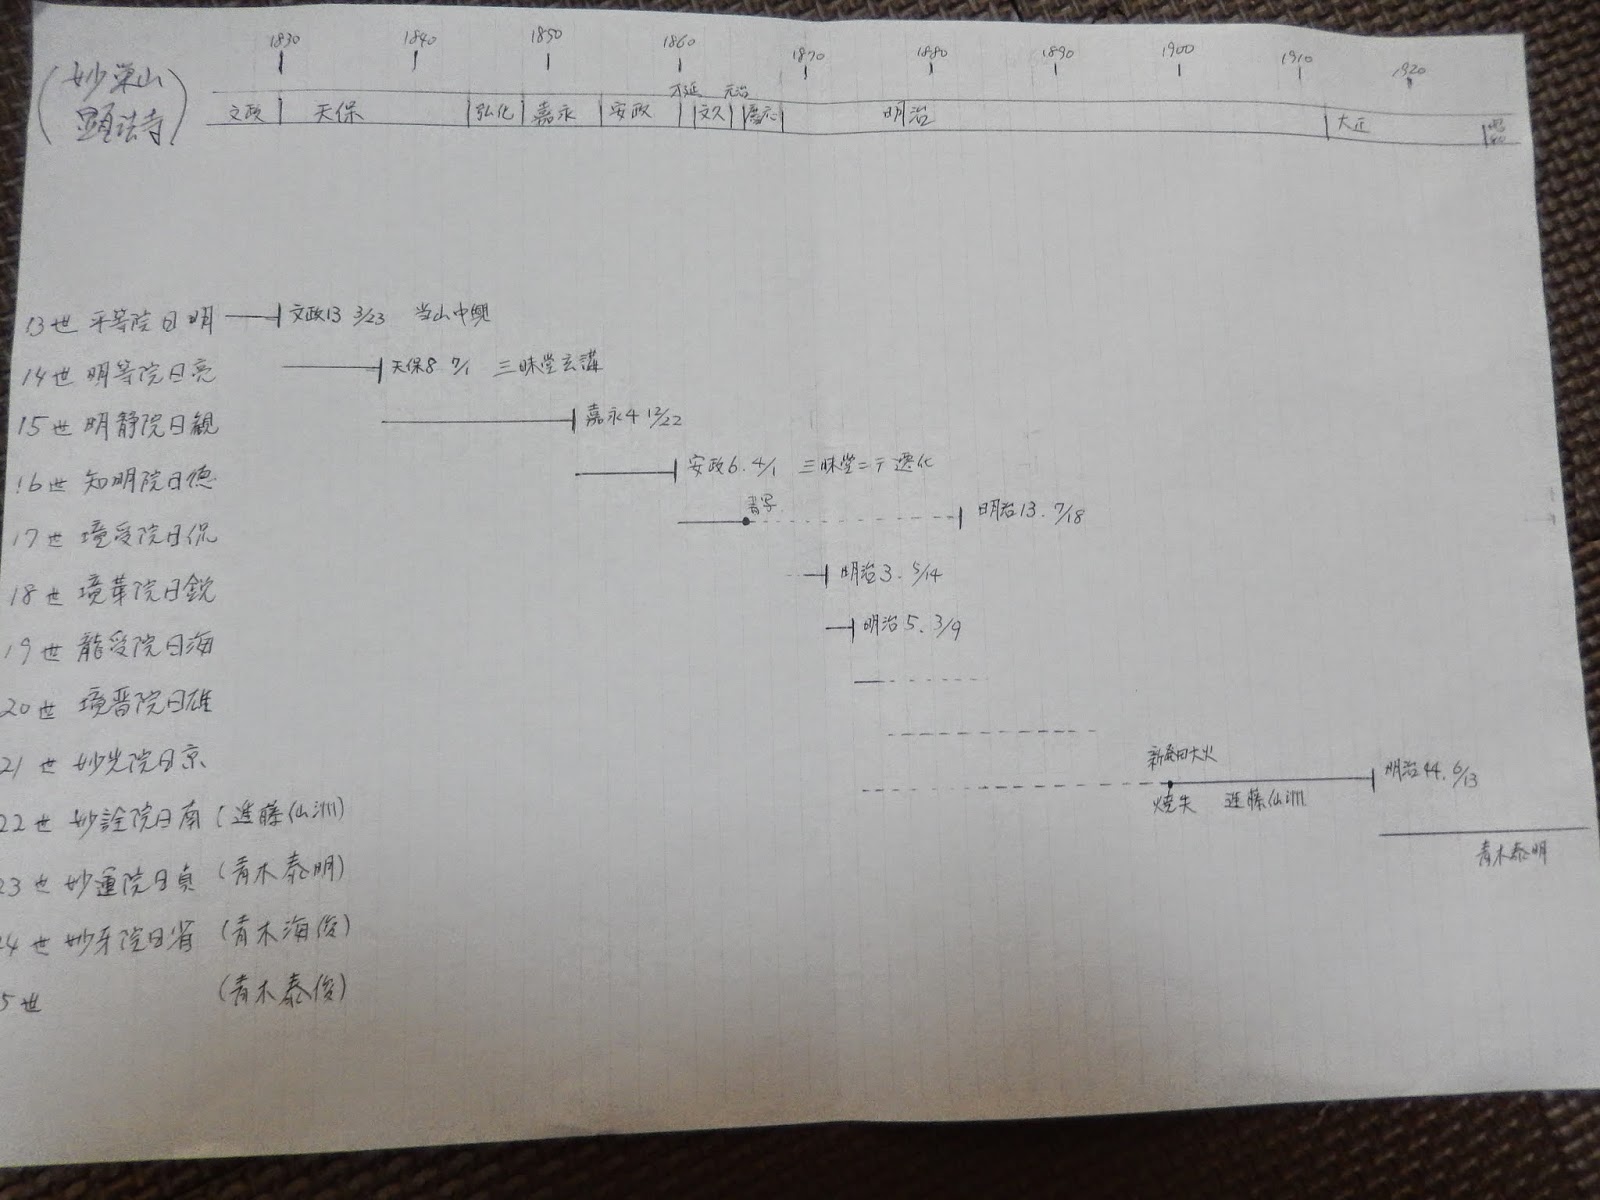 1830 1840 1850 1860 1870 1880 1890 1900 1910 1920
(妙栄山
顕法寺)
万延 元治
文政 天保 弘化 嘉永 安政 文久 慶応 明治 大正
13世 平等院日明 文政13 3/23 当山中興
14世 明等院日亮 天保8 7/1 三昧堂玄講
15世 明静院日観 嘉永4 12/22
16世 知明院日徳 安政6.4/1 三昧堂ニテ遷化
17世 境受院日侃 明治13.7/18
18世 境華院日鋭 明治3.5/14
19世 龍受院日海 明治5.3/9
20世 境晋院日雄
21世 妙光院日京
新発田大火
22世 妙詮院日南(進藤仙洲) 焼失 進藤仙洲 明治44.6/13
23世 妙運院日真(青木泰明) 青木泰明
24世 妙牙院日省(青木海俊)
5世 (青木泰俊)